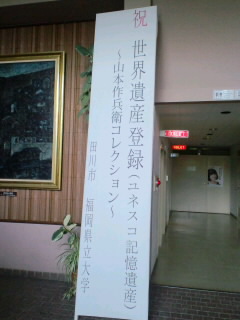 祝 世界遺産登録(ユネスコ記憶遺産)
~山本作兵衛コレクション~
田川市 福岡県立大学